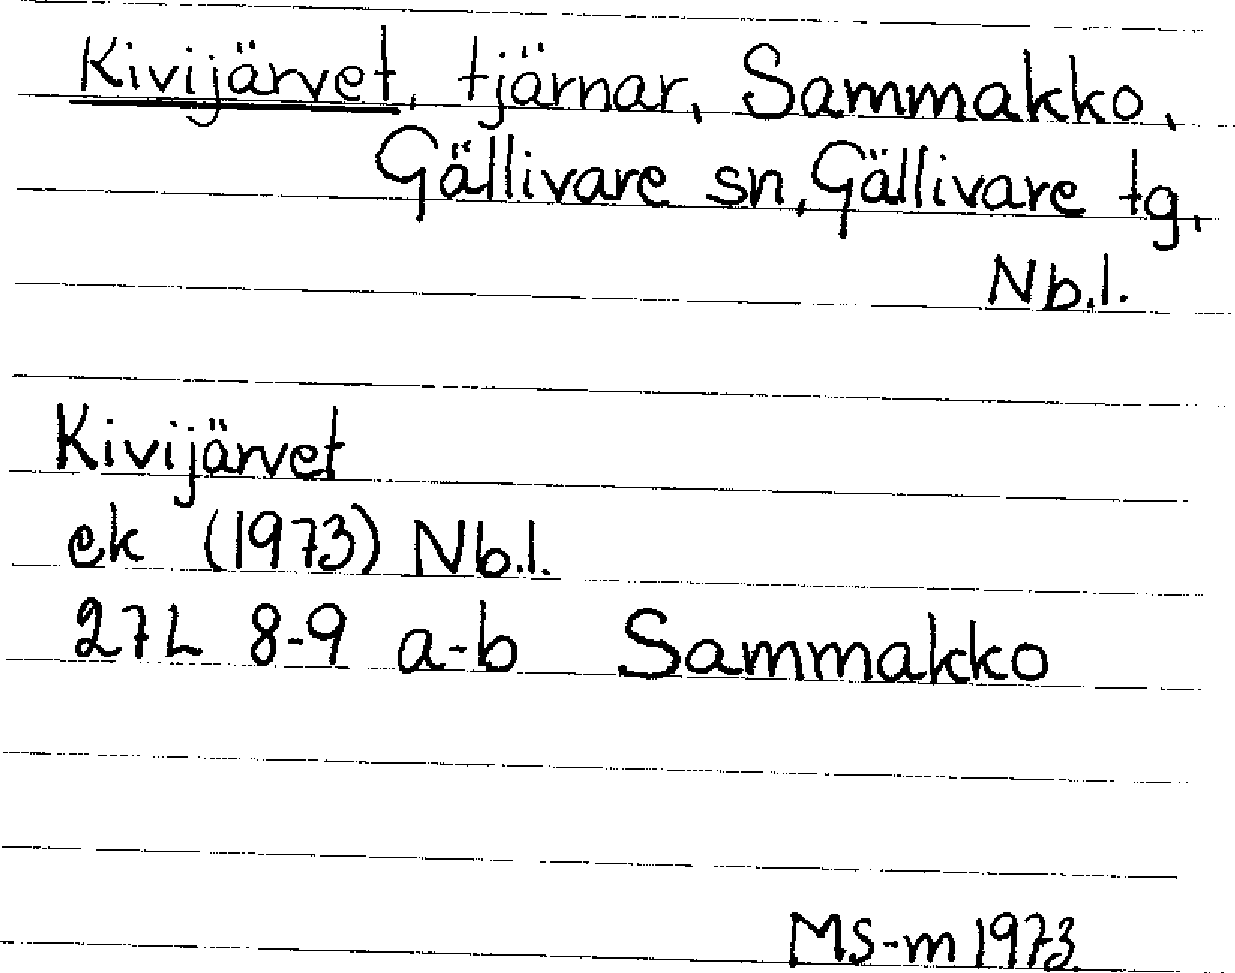 Kivijärvet, tjärnar, Sammakko,
Gällivare sn, Gällivare tg,
Nb.l.
Kivijärvet
ek (1973) Nb.l.
27L 8-9 a-b Sammakko
MS-m 1973